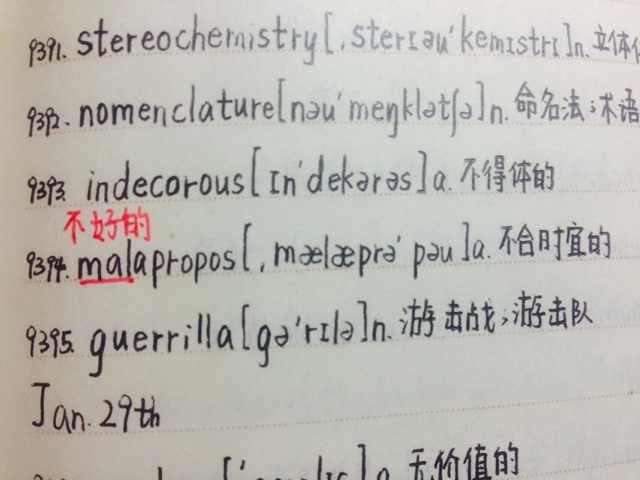 9391. stereochemistry [ˌsterɪəu'kemɪstrɪ]n. 立体
9392. nomenclature [nəu'meŋklətʃə]n. 命名法；术语
9393. indecorous [ɪn'dekərəs]a. 不得体的
不好的
9394. malapropos [ˌmælæprə'pəu]a. 不合时宜的
9395. guerrilla [gə'rɪlə]n. 游击战；游击队
Jan. 29th
a. 无价值的